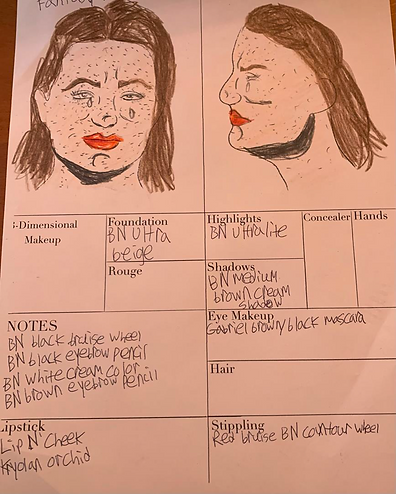 Foundation
BN Ultra
beige
Highlights
BN Ultralite
Concealer
Hands
3-Dimensional
Makeup
Rouge
Shadows
BN Medium
brown cream
shadow
NOTES
BN black bruise wheel
BN black eyebrow pencil
BN white cream color
BN brown eyebrow pencil
Eye Makeup
Gabriel brown/black mascara
Hair
Lipstick
Lip N' Cheek
Kryolan orchid
Stippling
Red bruise BN contour wheel